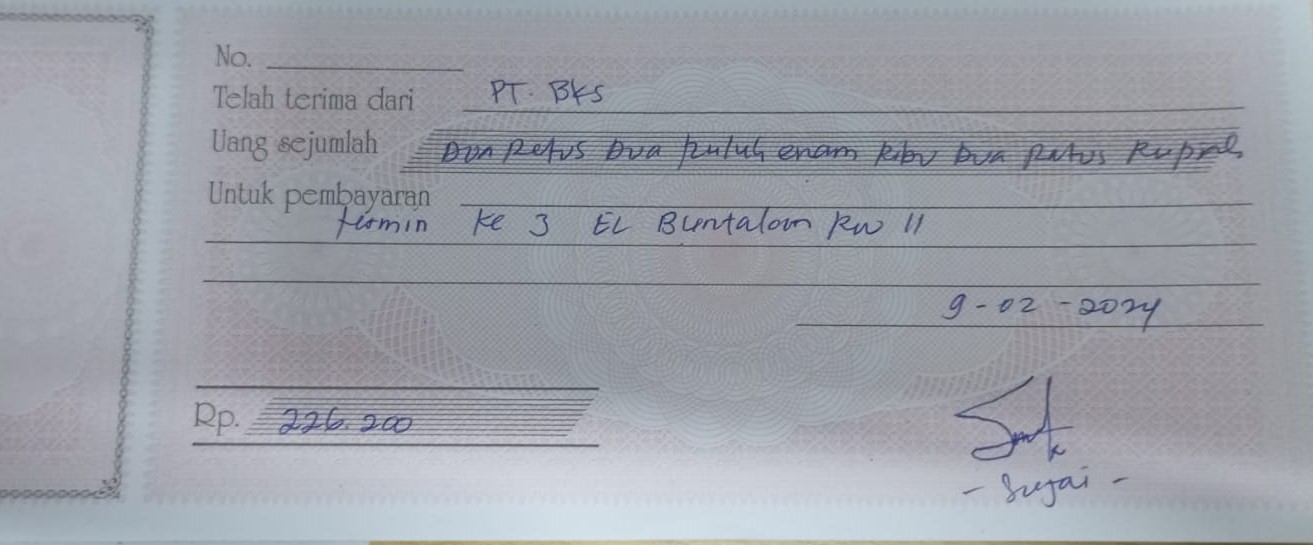 No.
Telah terima dari PT. BKS
Uang sejumlah Dua Ratus Dua puluh enam Ribu Dua Ratus Rupiah
Untuk pembayaran
termin ke 3 EL Buntalan RW 11
9-02-2024
Rp. 226.200
- Sugai -